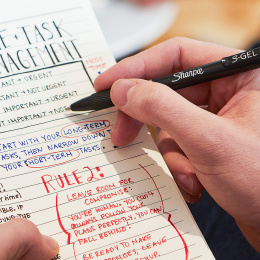 E + TASK
NAGEMENT
TANT + URGENT
TANT + NOT URGENT
IMPORTANT + URGENT
T IMPORTANT + NOT
START WITH YOUR LONG-TERM
TASKS, THEN NARROW DOWN T
YOUR SHORT-TERM TASKS.
RULE 2:
LEAVE ROOM FOR
COMPROMISE.
YOU'RE HUMAN. YOU WON'T
ALWAYS FOLLOW YOUR
PLANS PERFECTLY. YOU CAN
FALL BEHIND!
BE READY TO MAKE
LEAVE
TIME)
IBLE, IF
Sharpie
S-GEL